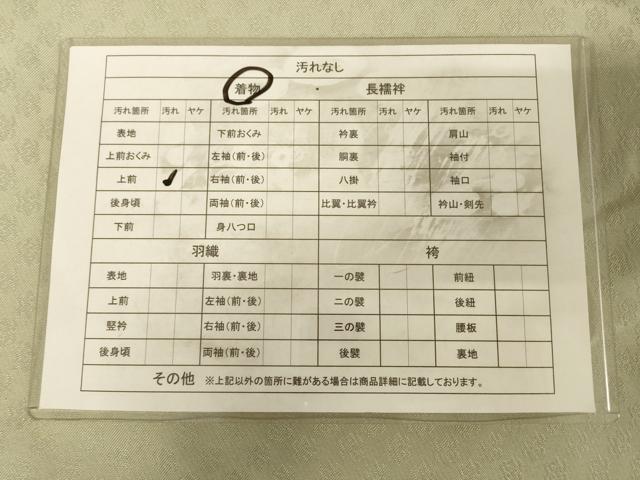 汚れなし
着物 ・ 長襦袢
汚れ箇所 汚れ ヤケ 汚れ箇所 汚れ ヤケ 汚れ箇所 汚れ ヤケ 汚れ箇所 汚れ ヤケ
表地 下前おくみ 衿裏 肩山
上前おくみ 左袖(前・後) 胴裏 袖付
上前 ✓ 右袖(前・後) 八掛 袖口
後身頃 両袖(前・後) 比翼・比翼衿 衿山・剣先
下前 身八つ口
羽織 袴
表地 羽裏・裏地 一の襞 前紐
上前 左袖(前・後) 二の襞 後紐
竪衿 右袖(前・後) 三の襞 腰板
後身頃 両袖(前・後) 後襞 裏地
その他 ※上記以外の箇所に難がある場合は商品詳細に記載しております。